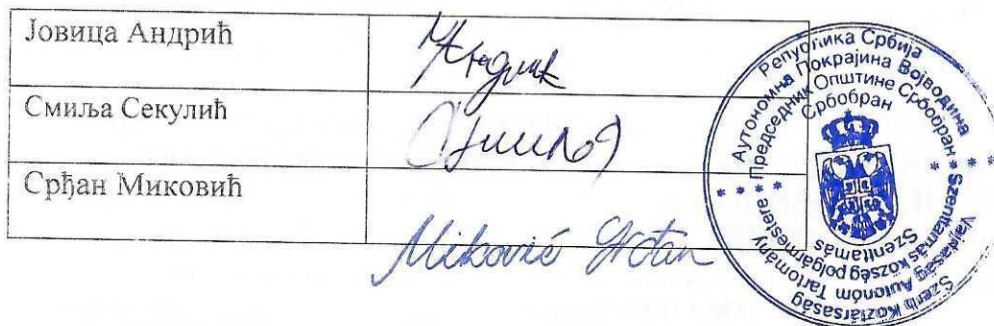 Јовица Андрић
Смиља Секулић
Срђан Миковић
Miković Srđan
Република Србија
Аутономна Покрајина Војводина
Председник Општине Србобран
Србобран
Szerb Köztársaság
Vajdaság Autonóm Tartomány
Szenttamás község polgármestere
Szenttamás